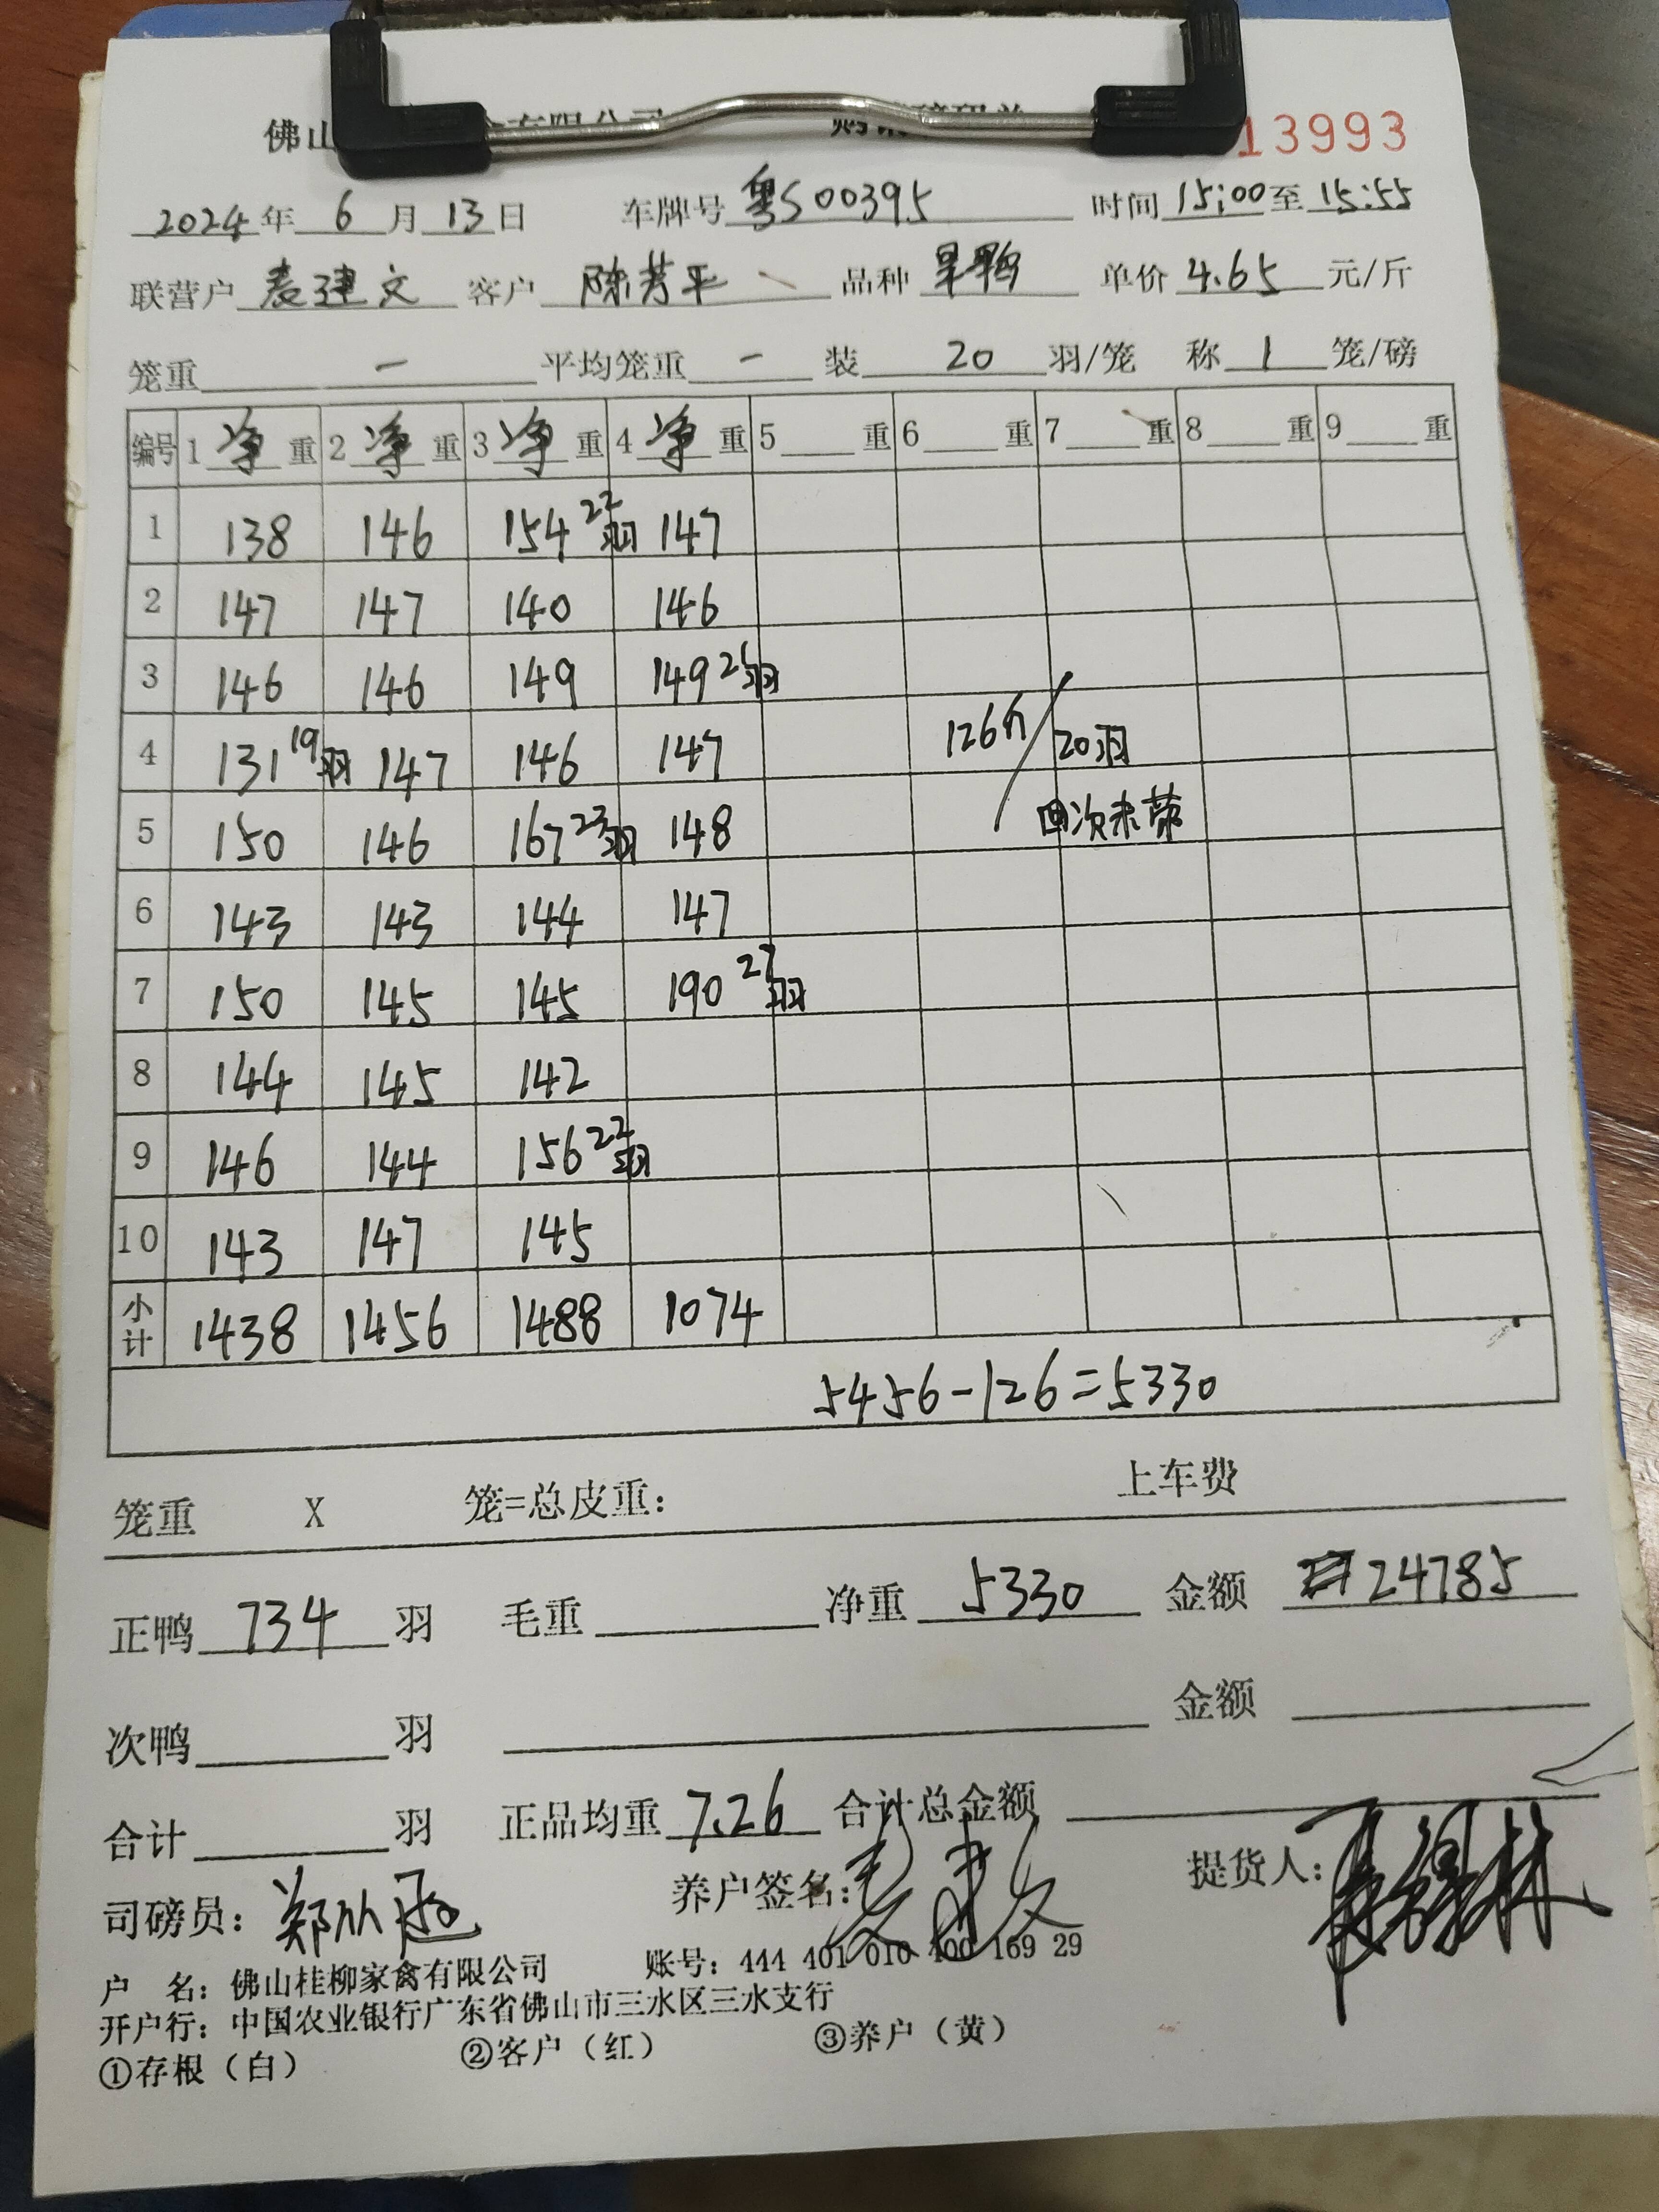 佛山 13993
2024年 6 月 13 日 车牌号 粤S00395 时间 15:00 至 15:55
联营户 麦建文 客户 陈芳平 品种 旱鸭 单价 4.65 元/斤
笼重 — 平均笼重 — 装 20 羽/笼 称 1 笼/磅
编号 1 净 重 2 净 重 3 净 重 4 净 重 5 重 6 重 7 重 8 重 9 重
1 138 146 154 22羽 147
2 147 147 140 146
3 146 146 149 149 21羽
4 131 19羽 147 146 147 126斤/20羽
5 150 146 167 23羽 148 次未带
6 143 143 144 147
7 150 145 145 190 27羽
8 144 145 142
9 146 144 156 22羽
10 143 147 145
小计 1438 1456 1488 1074
5456-126=5330
笼重 X 笼=总皮重: 上车费
正鸭 734 羽 毛重 净重 5330 金额 24785
次鸭 羽 金额
合计 羽 正品均重 7.26 合计总金额
司磅员: 郑 养户签名: 麦建文 提货人:
户 名: 佛山桂柳家禽有限公司 账号: 444 401 010 400 169 29
开户行: 中国农业银行广东省佛山市三水区三水支行
①存根(白) ②客户(红) ③养户(黄)